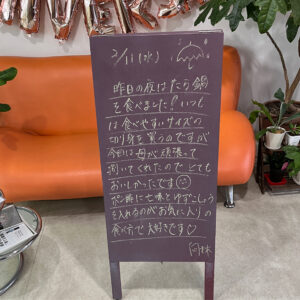 2/11(水)
昨日の夜はたら鍋
を食べました!いつも
は食べやすいサイズの
切り身を買うのですが
今回は母が頑張って
捌いてくれたのでとても
おいしかったです
ポン酢に七味とゆずこしょう
を入れるのがお気に入りの
食べ方で大好きです♡